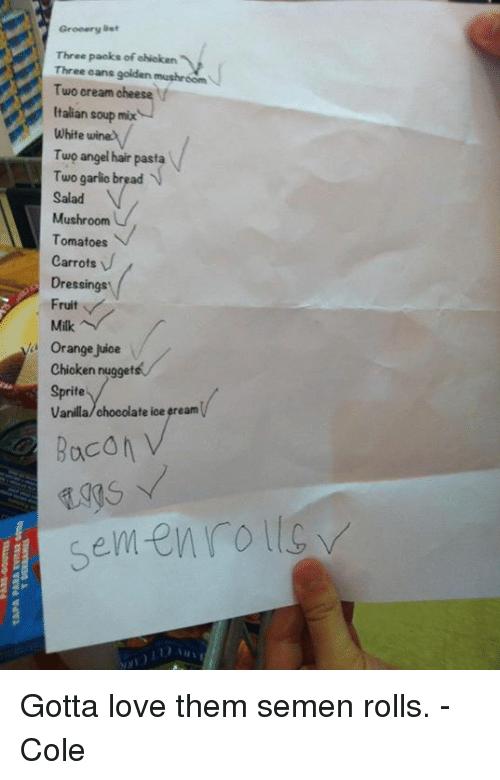 Grocery list
Three packs of chicken
Three cans golden mushroom
Two cream cheese
Italian soup mix
White wine
Two angel hair pasta
Two garlic bread
Salad
Mushroom
Tomatoes
Carrots
Dressings
Fruit
Milk
Orange juice
Chicken nuggets
Sprite
Vanilla/chocolate ice cream
Bacon
eggs
semenrolls
TAPA PARA EVITAR GOTEO
Y DERRAMES
Gotta love them semen rolls. -
Cole